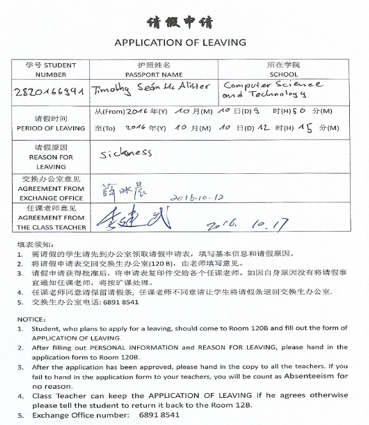 请假申请
APPLICATION OF LEAVING
学号 STUDENT NUMBER
护照姓名 PASSPORT NAME
所在学院 SCHOOL
2820166391 Timothy Seán Mc Alister Computer Science and Technology
请假时间
PERIOD OF LEAVING
从(From) 2016 年(Y) 10 月(M) 10 日(D) 9 时(H) 50 分(M)
至(To) 2016 年(Y) 10 月(M) 10 日(D) 12 时(H) 15 分(M)
请假原因
REASON FOR
LEAVING
sickness
交换办公室意见
AGREEMENT FROM
EXCHANGE OFFICE
薛冰晨 2016.10.12
任课老师意见
AGREEMENT FROM
THE CLASS TEACHER
2016. 10. 17
填表须知:
1. 需请假的学生请先到办公室领取请假申请表,填写基本信息和请假原因。
2. 将请假申请表交回交换生办公室(120 B),由老师填写意见。
3. 请假申请获得批准后,将申请表复印件交给各个任课老师。如因自身原因没有将请假事
宜通知任课老师,将按旷课处理。
4. 任课老师同意请保留请假条,任课老师不同意请让学生将请假条退回交换生办公室.
5. 交换生办公室电话: 6891 8541
NOTICE:
1. Student, who plans to apply for a leaving, should come to Room 120B and fill out the form of
APPLICATION OF LEAVING.
2. After filling out PERSONAL INFORMATION and REASON FOR LEAVING, please hand in the
application form to Room 120B.
3. After the application has been approved, please hand in the copy to all the teachers. If you
fail to hand in the application form to your teachers, you will be count as Absenteeism for
no reason.
4. Class Teacher can keep the APPLICATION OF LEAVING if he agrees otherwise
please tell the student to return it back to the Room 12B.
5. Exchange Office number: 6891 8541